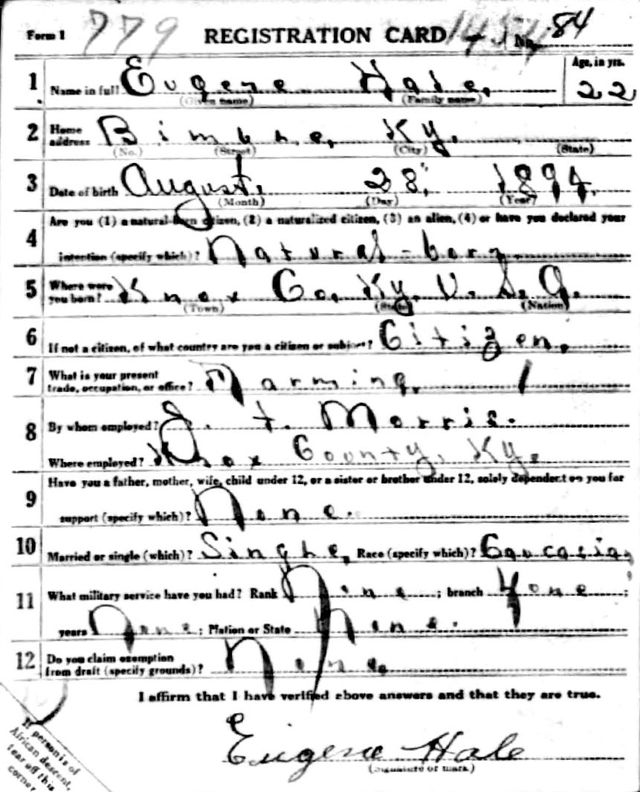 Form 1 779 REGISTRATION CARD No. 84
1 Name in full Eugene Hale, Age, in yrs. 22
(Given name) (Family name)
2 Home address Bimble, Ky.
(No.) (Street) (City) (State)
3 Date of birth August. 28, 1894.
(Month) (Day) (Year)
4 Are you (1) a natural-born citizen, (2) a naturalized citizen, (3) an alien, (4) or have you declared your
intention (specify which)? Natural-born.
5 Where were you born? Knox Co, Ky, U. S. A.
(Town) (State) (Nation)
6 If not a citizen, of what country are you a citizen or subject? Citizen.
7 What is your present trade, occupation, or office? Farming.
8 By whom employed? J. t. Morris.
Where employed? Knox County, Ky.
9 Have you a father, mother, wife, child under 12, or a sister or brother under 12, solely dependent on you for
support (specify which)? None.
10 Married or single (which)? Single, Race (specify which)? Caucasian
11 What military service have you had? Rank None; branch None;
years None; Nation or State None.
12 Do you claim exemption from draft (specify grounds)? None.
I affirm that I have verified above answers and that they are true.
Eugene Hale
(Signature or mark)
If person is of
African descent,
tear off this
corner